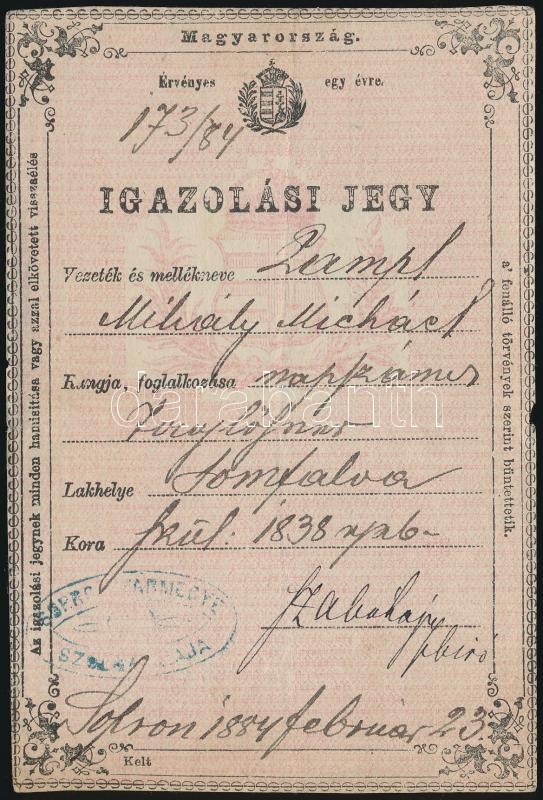 Magyarország.
Érvényes egy évre.
173/84
IGAZOLÁSI JEGY
Vezeték és mellékneve Zampl
Mihály Michael
Rangja, foglalkozása napszámos
Taglöhner
Lakhelye Somfalva
Kora szül: 1838
Szabohajy
szbiró
SOPRON VÁRMEGYE
Sopron 1884 február 23.
Kelt
Az igazolási jegynek minden hamisitása vagy azzal elkövetett visszaélés
a' fenálló törvények szerint büntettetik.
darabanth